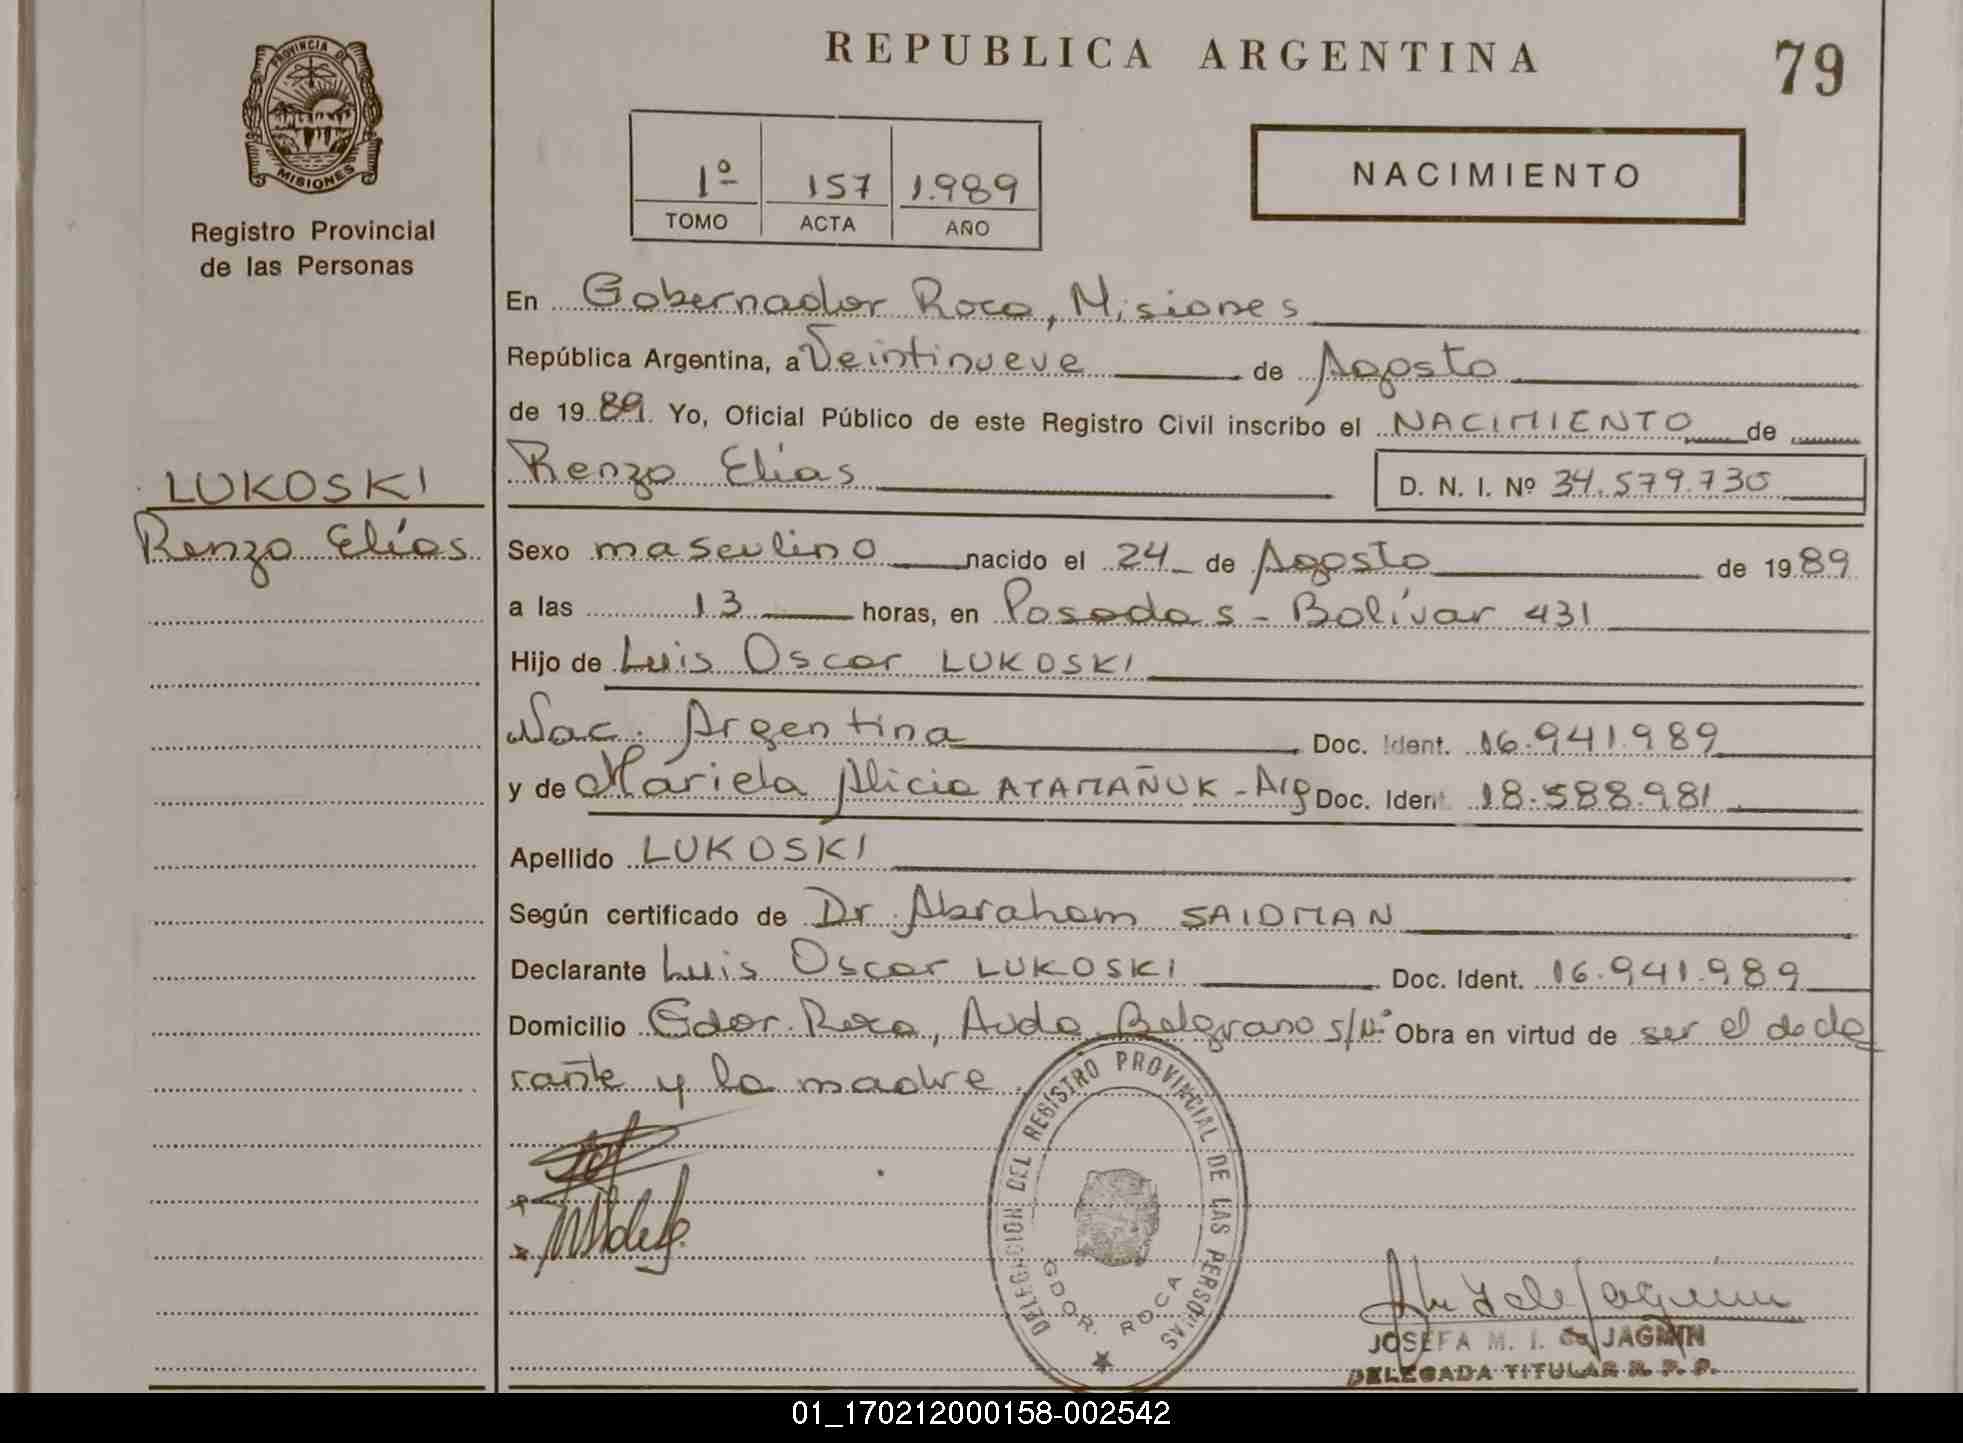 REPUBLICA ARGENTINA
79
PROVINCIA DE
MISIONES
Registro Provincial
de las Personas
1º 157 1.989
TOMO ACTA AÑO
NACIMIENTO
En Gobernador Roca, Misiones
República Argentina, a Veintinueve de Agosto
de 19 89. Yo, Oficial Público de este Registro Civil inscribo el NACIMIENTO de
Renzo Elías D. N. I. Nº 34.579.730
LUKOSKI
Renzo Elías
Sexo masculino nacido el 24 de Agosto de 19 89
a las 13 horas, en Posadas - Bolívar 431
Hijo de Luis Oscar LUKOSKI
Nac. Argentina Doc. Ident. 16.941.989
y de Mariela Alicia ATAMAÑUK - Arg Doc. Ident 18.588.981
Apellido LUKOSKI
Según certificado de Dr. Abraham SAIDMAN
Declarante Luis Oscar LUKOSKI Doc. Ident. 16.941.989
Domicilio Gdor. Roca, Avda. Belgrano s/nº Obra en virtud de ser el decla
rante y la madre.
DELEGACION DEL REGISTRO PROVINCIAL DE LAS PERSONAS
GDOR. ROCA
JOSEFA M. I. de JAGMIN
DELEGADA TITULAR R. P. P.
01_170212000158-002542